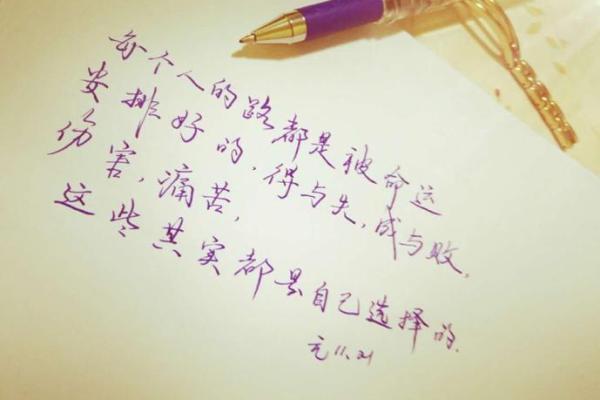 每个人的路都是被命运
安排好的,得与失,成与败,
伤害,痛苦,
这些其实都是自己选择的.
11.21